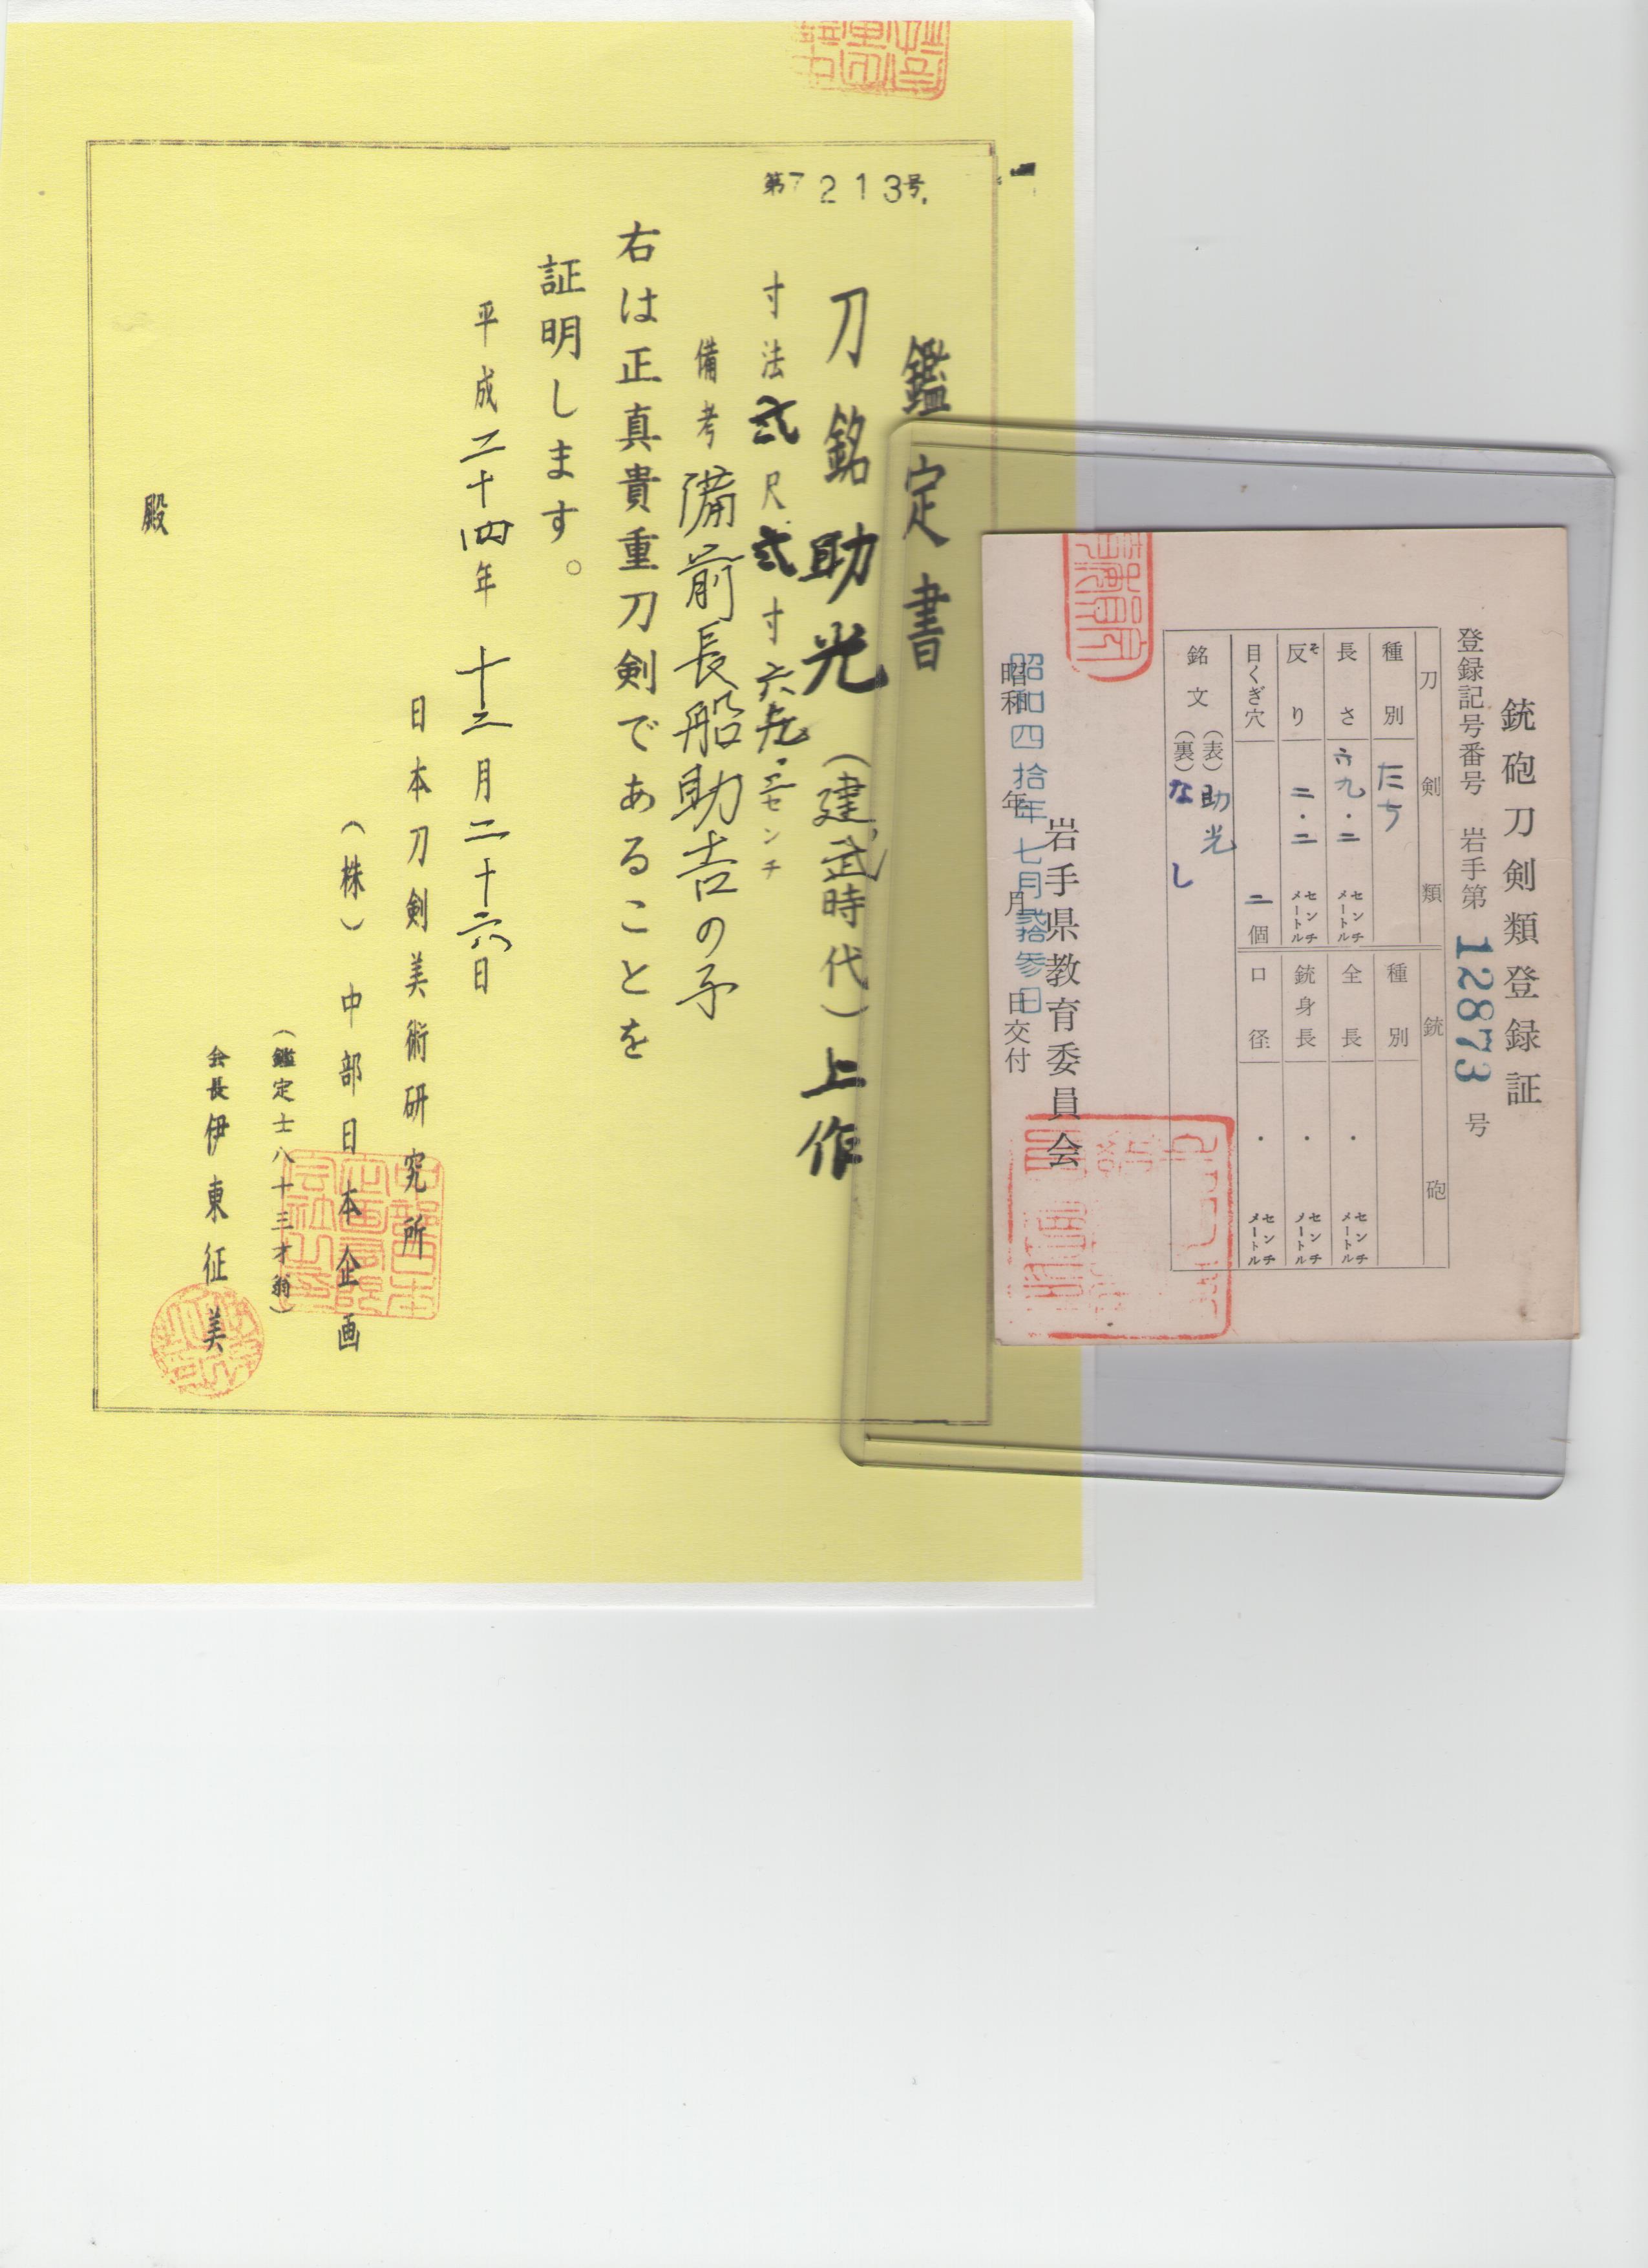 第7213号
鑑定書
刀銘 助光（建武時代）上作
寸法 弐尺弐寸 六九・二センチ
備考 備前長船助吉の子
右は正真貴重刀剣であることを
証明します。
平成二十四年 十二月二十六日
日本刀剣美術研究所
（株）中部日本企画
（鑑定士八十三才翁）
会長 伊東征美
殿
銃砲刀剣類登録証
登録記号番号 岩手第 12873 号
刀剣類
種別 たち
長さ 六九・二 センチメートル
反り そ 二・二 センチメートル
目くぎ穴 二 個
銃砲
種別
全長 ・ センチメートル
銃身長 ・ センチメートル
口径 ・ センチメートル
銘文（表）助光
（裏）なし
岩手県教育委員会
昭和 年 月 日交付
昭和四拾年七月弐拾参日